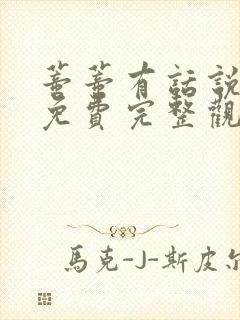 蔷蔷有話說
免費完整觀
馬克-J-斯皮尔